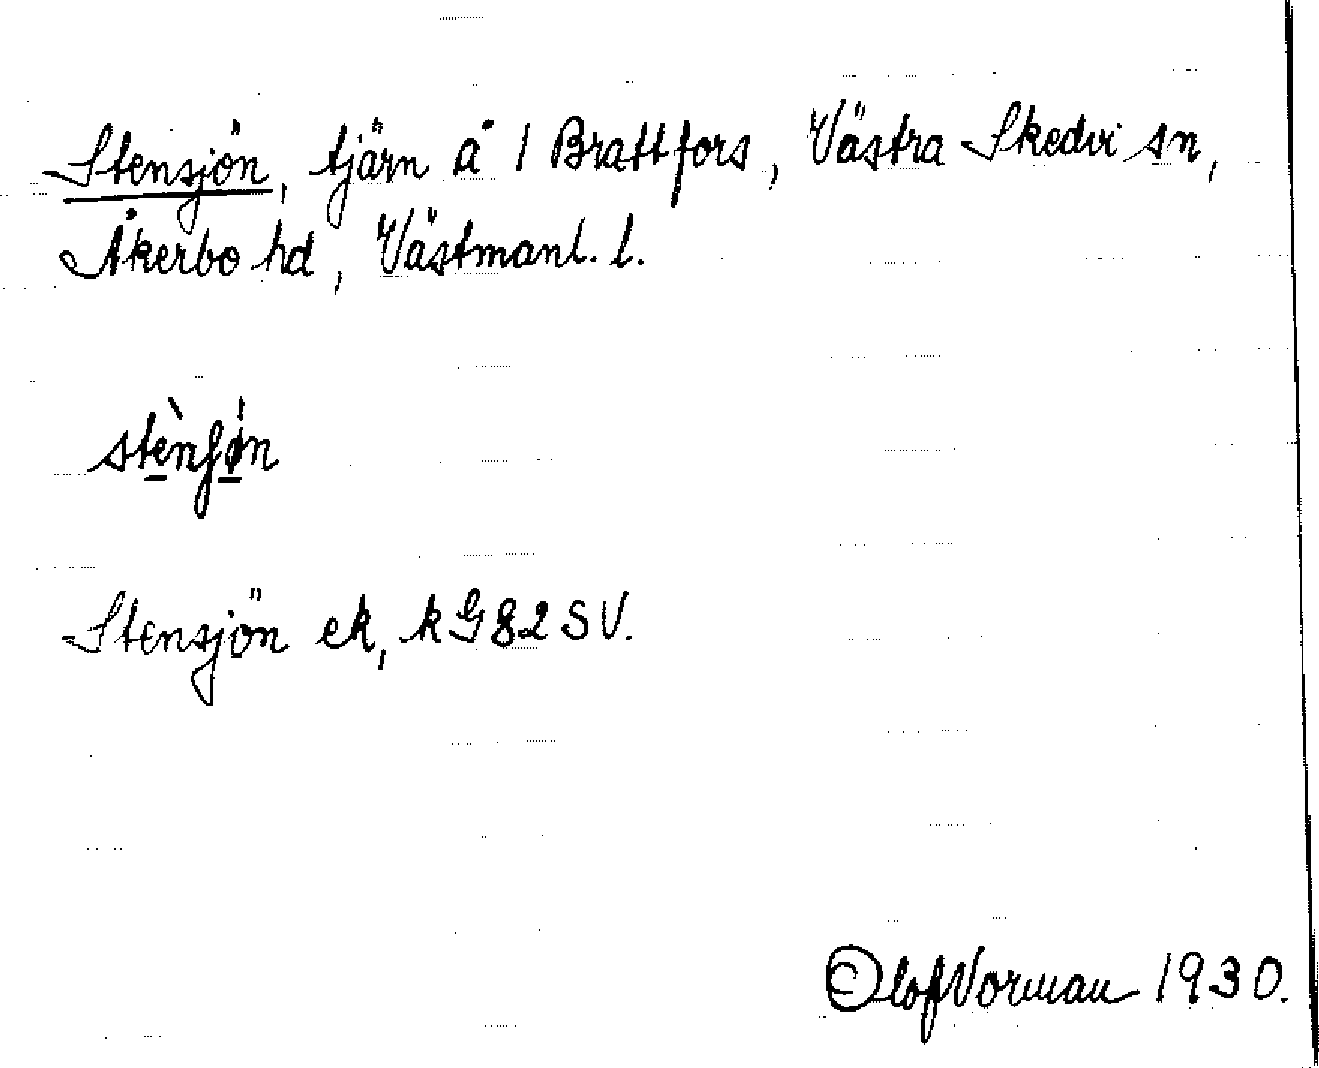 Stensjön, tjärn å 1 Brattfors, Västra Skedvi sn,
Åkerbo hd, Västmanl. l.
Stensjön ek, k G82 SV.
Olof Vorman 1930.